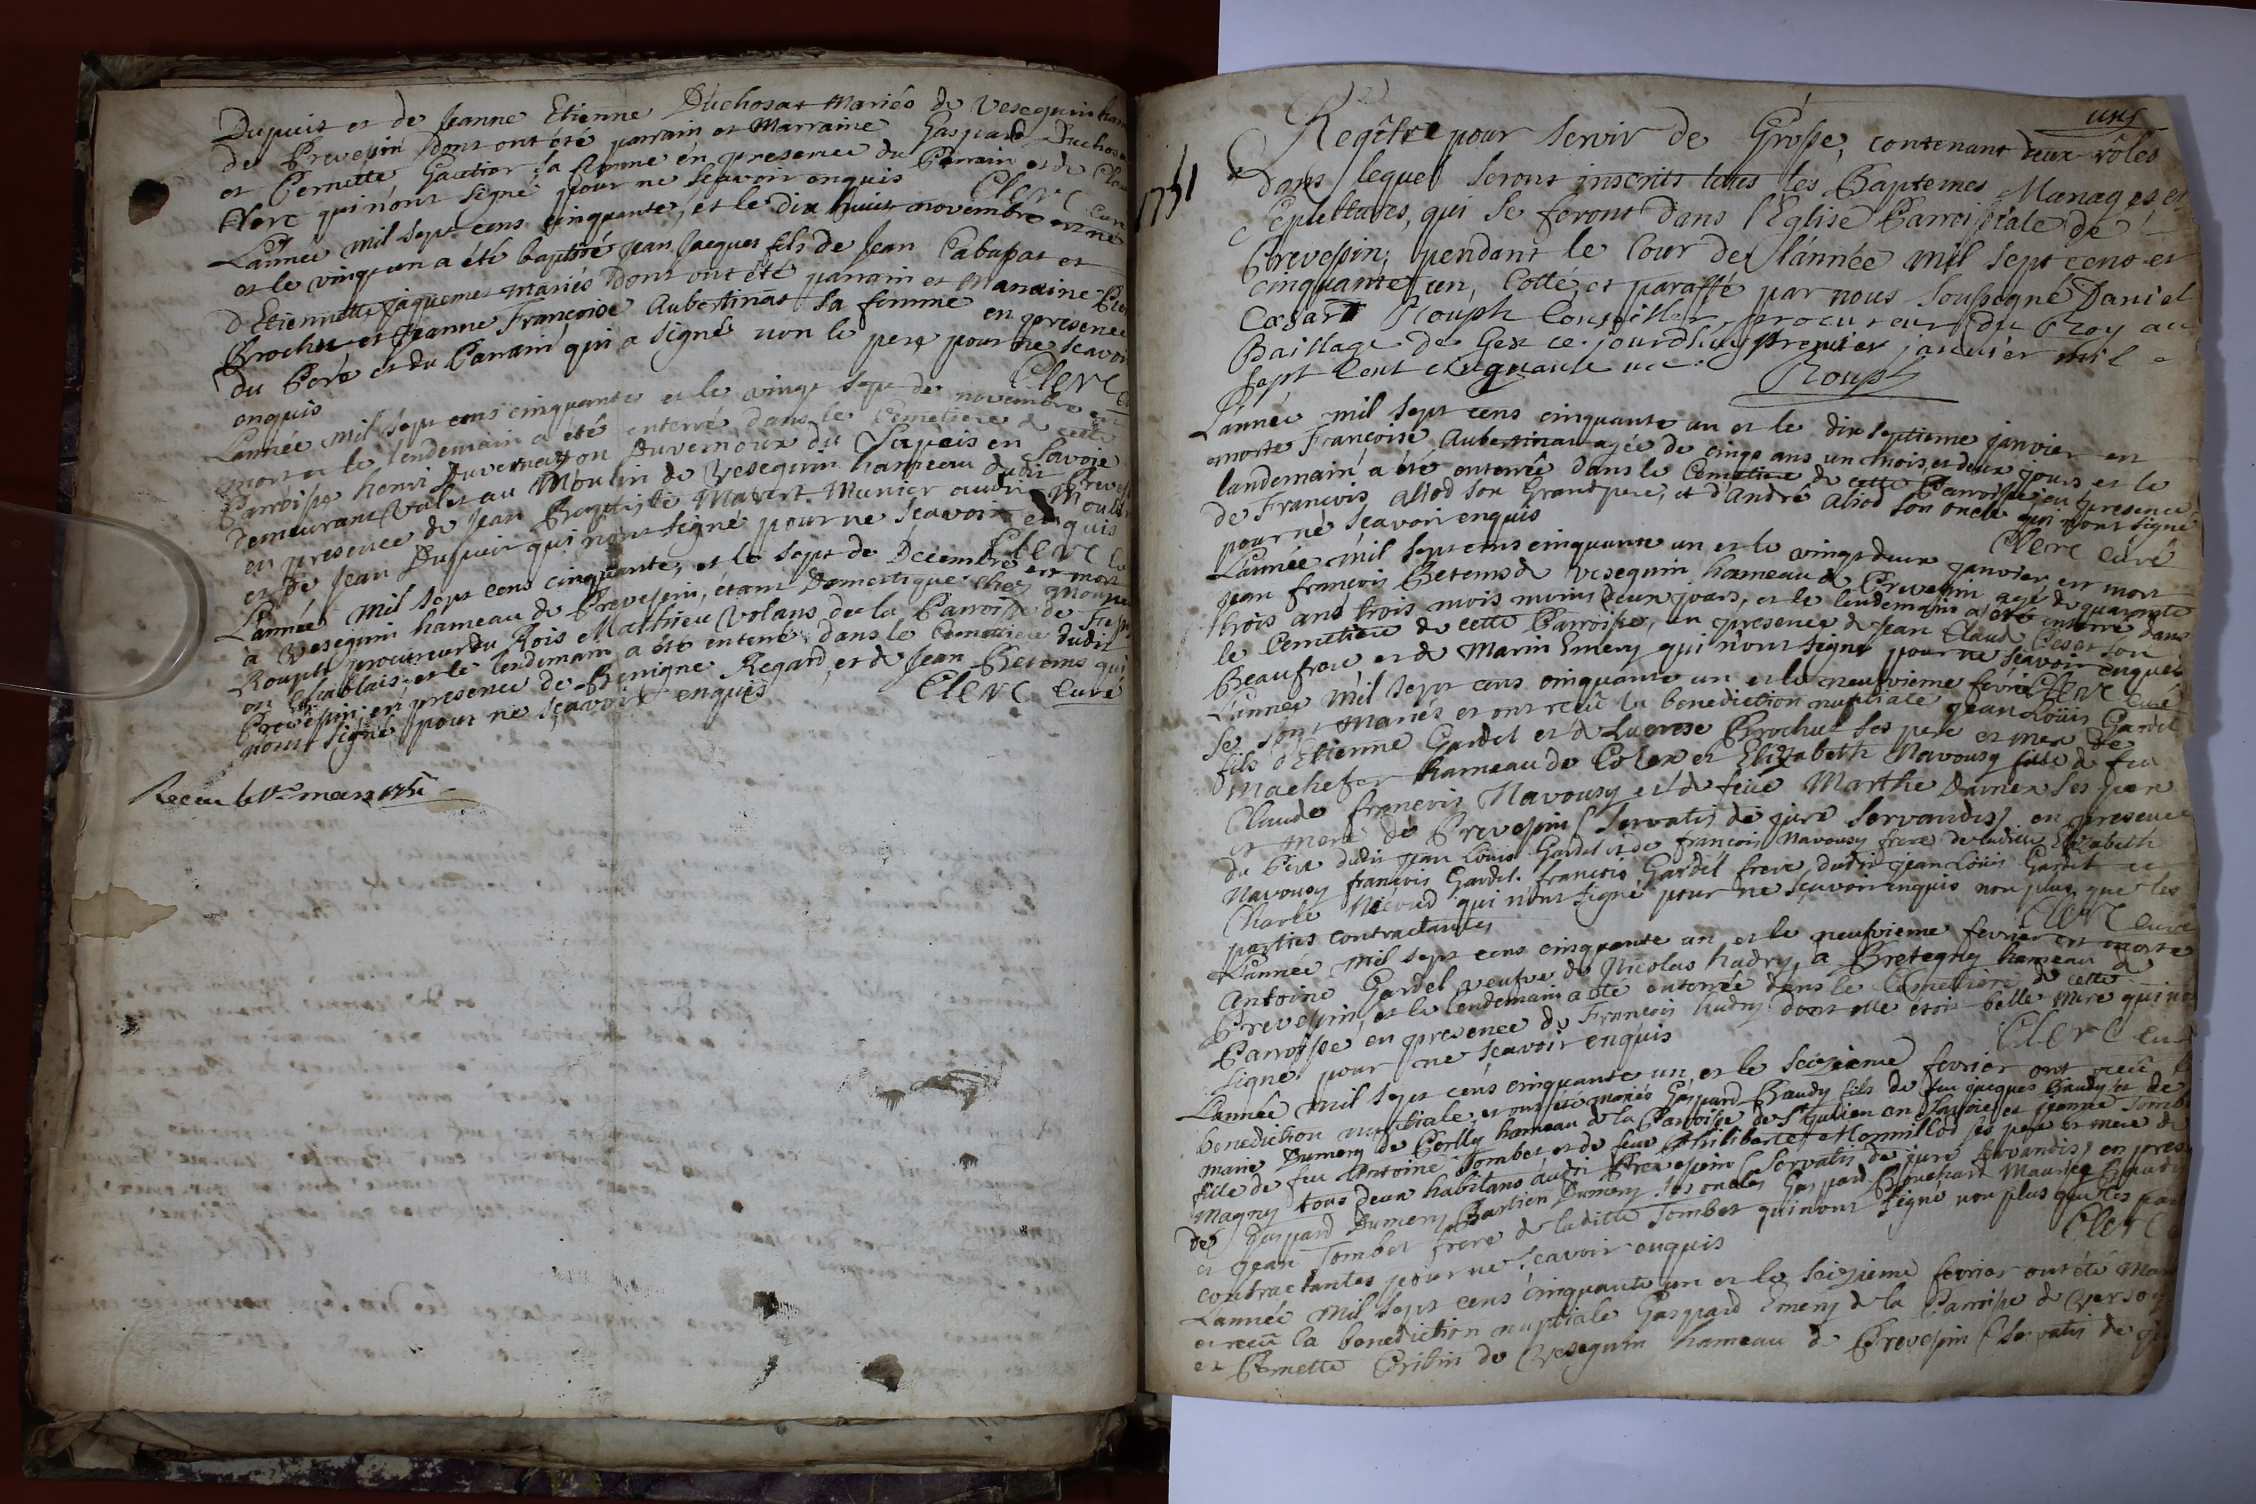 Dupuis et de Jeanne Etienne Duchosat mariés de Vesegnin ham
de Prevesin dont ont été parrain et Marraine Gaspard Duchosa
et Pernette Gautier sa femme en presence du Parrain et de Clau
Clerc qui n'ont signé pour ne scavoir enquis Clerc curé
L'année mil sept cens cinquante, et le dix huit novembre est né
et le vingt un a été baptisé Jean Jacques fils de Jean Cabupat et
d'Etiennette Jaquemet mariés dont ont été parrain et Marraine
Brochu et Jeanne Françoise Aubertinat sa femme en presence
du Pere et du Parrain qui a signé non le pere pour ne scavoir
enquis Clerc
L'année mil sept cens cinquante et le vingt sept de novembre est
mort et le lendemain a été enterré dans le Cemetiere de cette
Parroisse henri Duvernay ou Duvernoux du en Savoie
demeurant valet au Moulin de Vesegnin hameau dudit Preves
en presence de Jean Baptiste Munier audit Moulin
et de Jean Dupuis qui n'ont signé pour ne scavoir enquis
Clerc
L'année mil sept cens cinquante, et le sept de Decembre est mort
à Vesegnin hameau de Prevesin, étant Domestique chez Monsieur
Rouph procureur du Rois Mathieu Volans de la Parroisse de
en Chablais et le lendemain a été enterré dans le Cemetiere dudit
Prevesin en presence de Benigne Regard, et de Jean Betems qui
n'ont signé pour ne scavoir enquis Clerc curé
uns
1751
Regître pour servir de Grosse, contenant deux rôles
dans lequel seront inscrits tous les Baptemes Mariages et
Sepultures, qui se feront dans l'Eglise Parroissiale de
Prevessin, pendant le cour de l'année mil sept cens et
cinquante un, Cotté, et paraffé par nous soussigné Daniel
Cæsar Rouph Conseiller, procureur du Roy au
Baillage de Gex ce jourdhuy premier janvier mil
sept cent cinquante un. Rouph
L'année mil sept cens cinquante un et le dix septieme janvier est
morte Françoise Aubertinat agée de cinq ans un mois, et deux jours et le
landemain a été enterrée dans le Cemetiere de cette Parroisse en presence
de François aliod son Grand pere, et d'André aliod son oncle qui n'ont signé
pour ne scavoir enquis Clerc curé
L'année mil sept cens cinquante un et le vingt deux janvier est mort
Jean françois Betems de Vesegnin hameau de Prevesin agé de quarante
trois ans trois mois moins deux jours, et le lendemain a été enterré dans
le Cemetiere de cette Parroisse, en presence de Jean Claude son
Beaufrere et de Marin Emery qui n'ont signé pour ne scavoir enquis
Clerc curé
L'année mil sept cens cinquante un et le neufvieme fevrier
se sont mariés et ont recû la benediction nuptiale Jean Loüis Gardel
fils d'Etienne Gardel et de Lucrese Brochut ses pere et mere de
Machefer hameau de Colex et Elizabeth Navousy fille de feu
Claude françois Navousy et de feüe Marthe ses pere
et mere de Prevesin (servatis de jure servandis) en presence
du Pere dudit Jean Loüis Gardel et de françois Navousy frere de ladite Elizabeth
Navousy françois Gardel. françois Gardel frere dudit Jean Loüis Gardel et
Charle Nicoud qui n'ont signé pour ne scavoir enquis non plus que les
parties contractantes Clerc curé
L'année mil sept cens cinquante un, et le neufvieme fevrier est morte
Antoine Gardel veufve de Nicolas hudry, a Bretegny hameau de
Prevesin, et le lendemain a été enterrée dans le Cemetiere de cette
Parroisse en presence de François hudry dont elle étoit belle mere qui n'a
signé pour ne scavoir enquis Clerc curé
L'année mil sept cens cinquante un, et le seizieme fevrier ont recû la
benediction nuptiale, et ont été mariés Gaspard Baudy fils de feu jacques Baudy et de
marie Dumeny de Cerlly hameau de la Parroisse de St Julien en Savoie et Jeanne Tombet
fille de feu Antoine Tombet, et de feüe Philiberte Mermillod ses pere et mere de
Magny tous deux habitans audit Prevesin (servatis de jure servandis) en presence
de Gaspard Dumeny Bastien Dumeny ses oncles Gaspard Bouchard Maurice Baudy
et Jean Tombet frere de ladite Tombet qui n'ont signé non plus que les par
contractantes pour ne scavoir enquis Clerc
L'année mil sept cens cinquante un et le seizieme fevrier ont été Mar
et recû la benediction nuptiale Gaspard Emery de la Parroisse de Versoy
et Pernette de Vesegnin hameau de Prevesin (servatis de ju